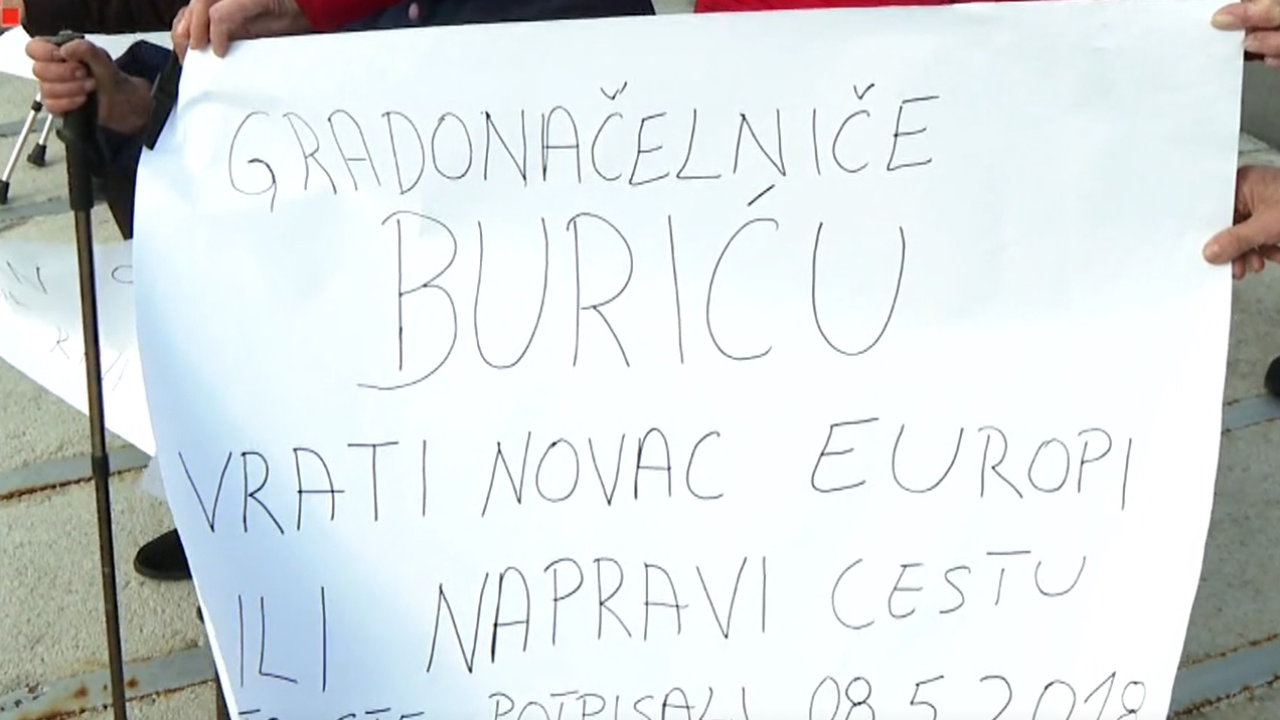 GRADONAČELNIČE
BURIĆU
VRATI NOVAC EUROPI
ILI NAPRAVI CESTU
STE POTPISALI 08.5.2018